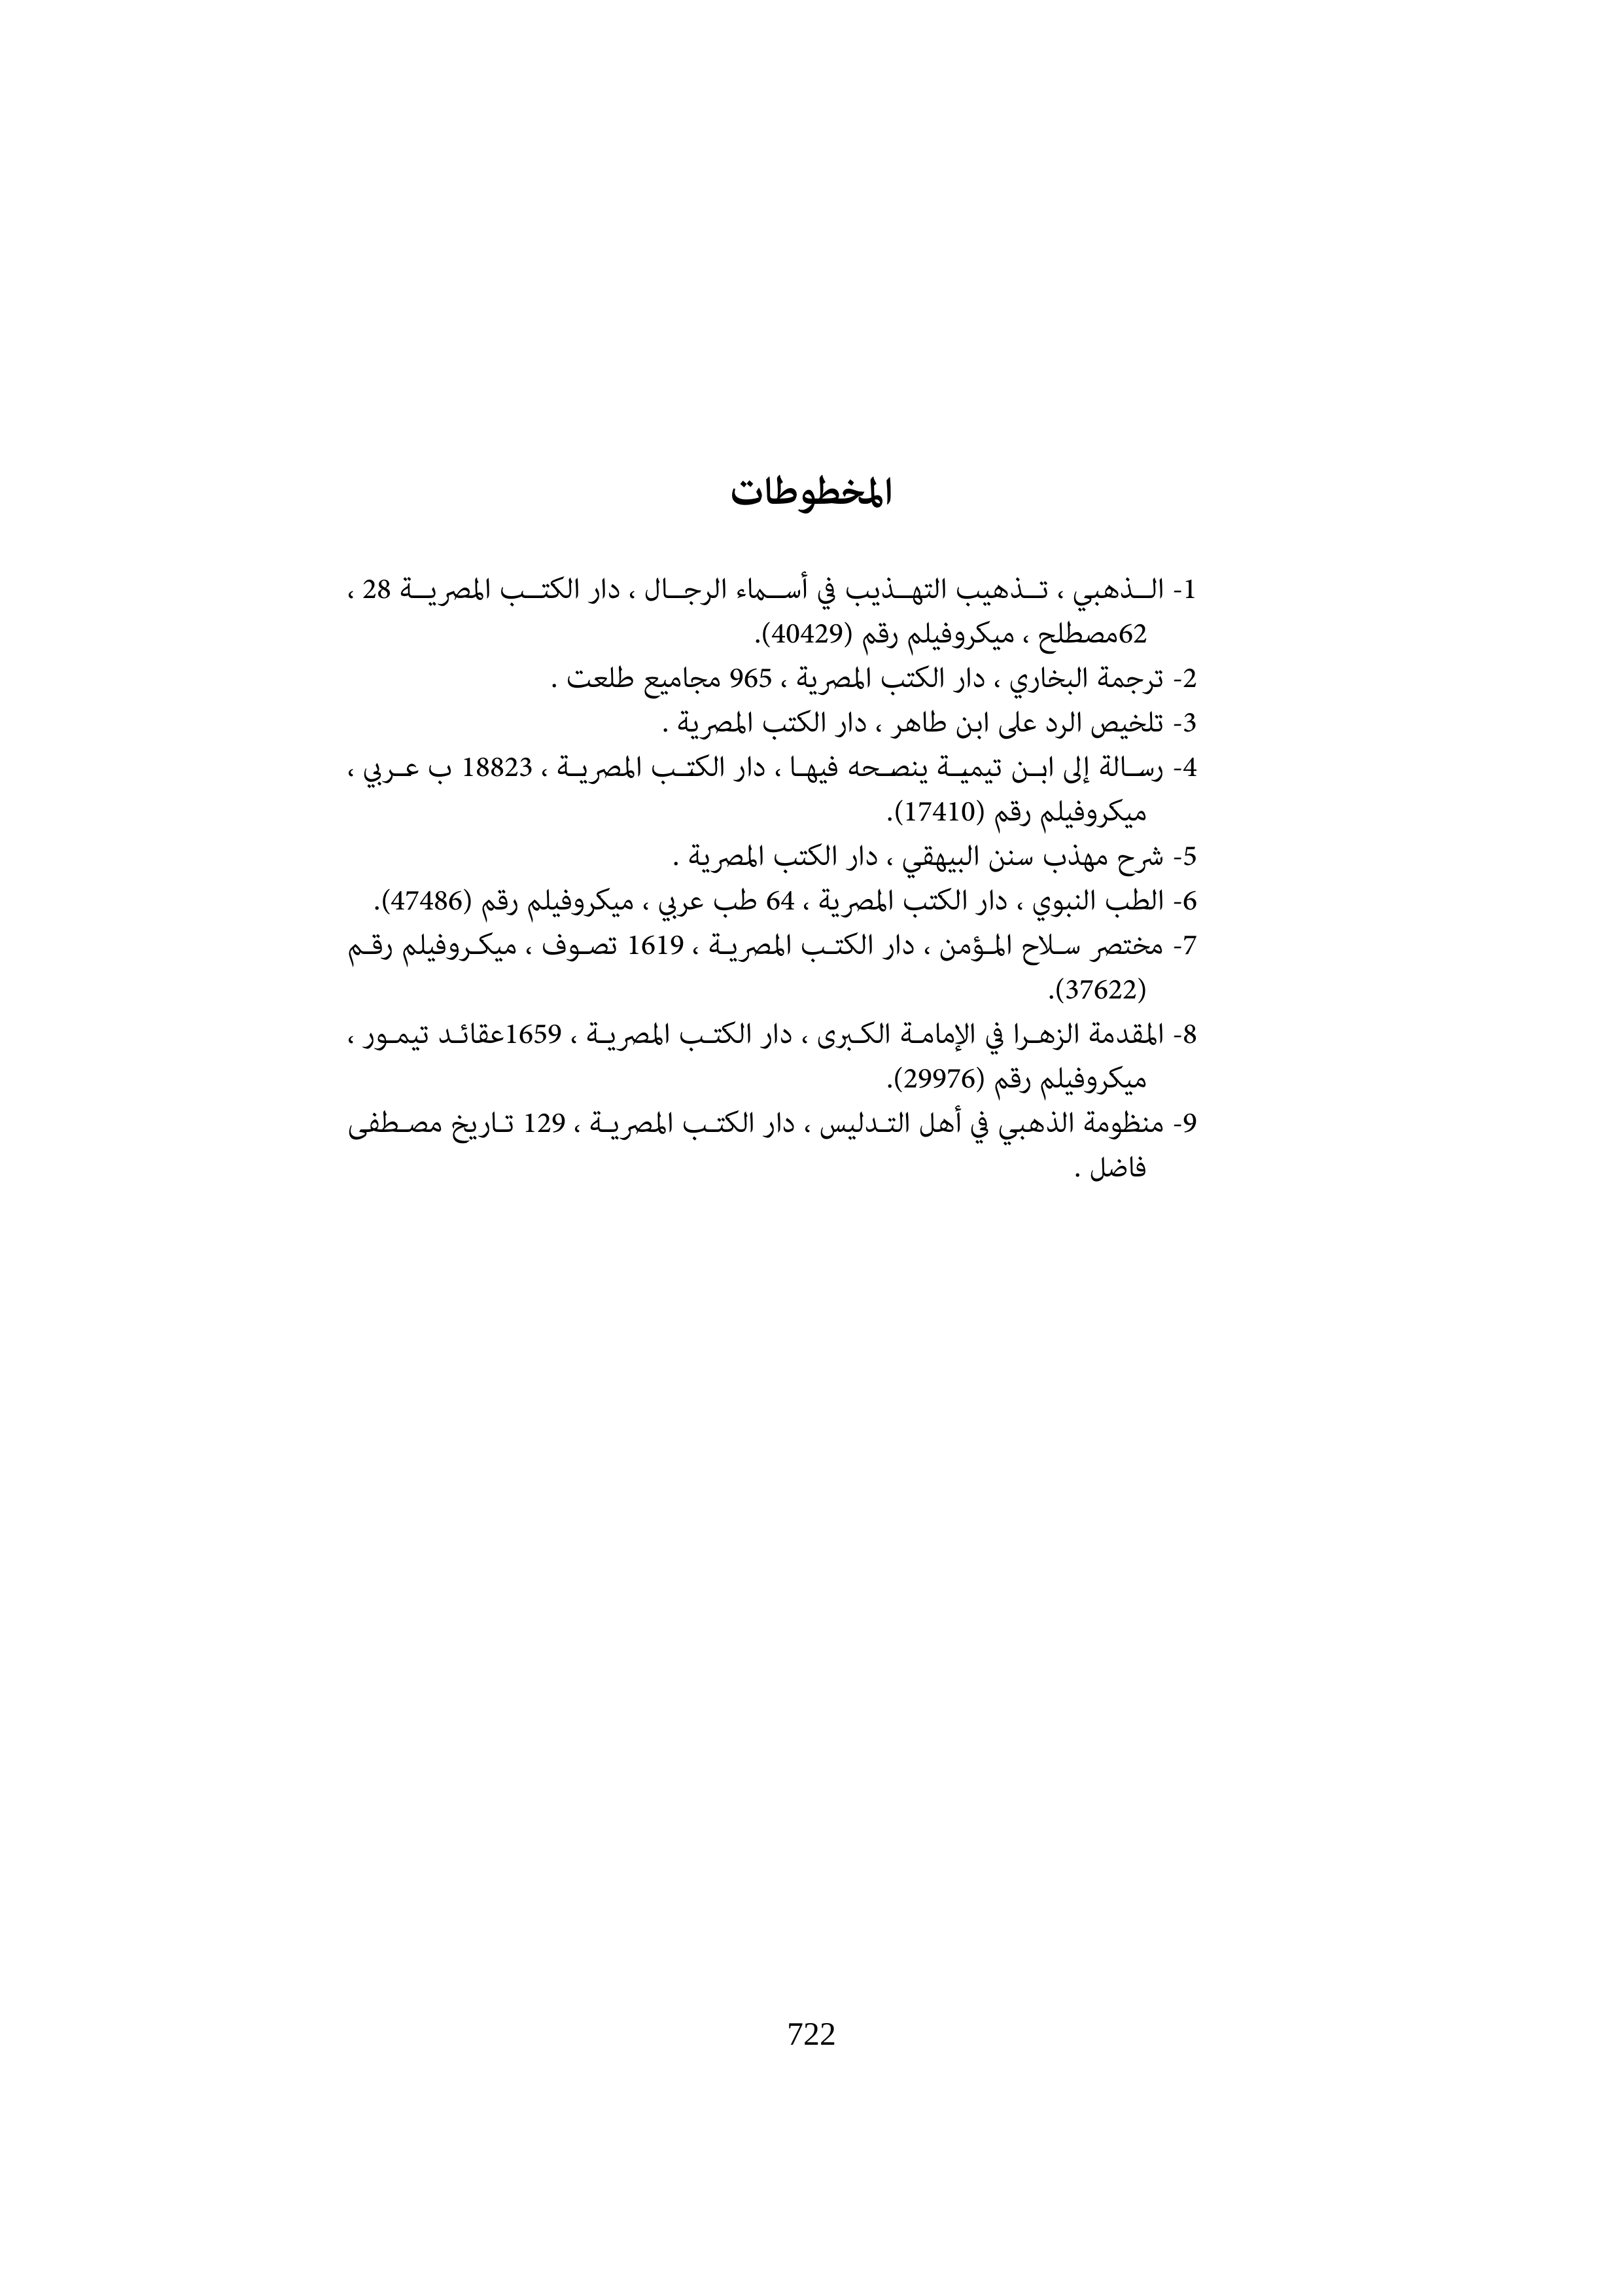 المخطوطات
1- الذهبي ، تذهيب التهذيب في أسماء الرجال ، دار الكتب المصرية 28 ،
62مصطلح ، ميكروفيلم رقم (40429).
2- ترجمة البخاري ، دار الكتب المصرية ، 965 مجاميع طلعت .
3- تلخيص الرد على ابن طاهر ، دار الكتب المصرية .
4- رسالة إلى ابن تيمية ينصحه فيها ، دار الكتب المصرية ، 18823 ب عربي ،
ميكروفيلم رقم (17410).
5- شرح مهذب سنن البيهقي ، دار الكتب المصرية .
6- الطب النبوي ، دار الكتب المصرية ، 64 طب عربي ، ميكروفيلم رقم (47486).
7- مختصر سلاح المؤمن ، دار الكتب المصرية ، 1619 تصوف ، ميكروفيلم رقم
(37622).
8- المقدمة الزهرا في الإمامة الكبرى ، دار الكتب المصرية ، 1659عقائد تيمور ،
ميكروفيلم رقم (29976).
9- منظومة الذهبي في أهل التدليس ، دار الكتب المصرية ، 129 تاريخ مصطفى
فاضل .
722